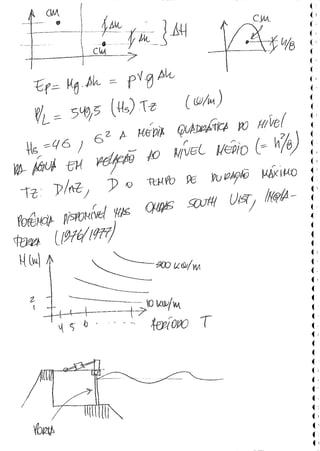 CM
Δh
Δh
} ΔH
CM
CM
h/8
Ep = Mg.Δh = ρVgΔh
P/L = 549,5 (Hs) Tz (W/m)
Hs = 4б, б² A MÉDIA QUADRÁTICA DO NÍVEL
DA ÁGUA EM RELAÇÃO AO NÍVEL MÉDIO (= h²/8)
Tz: D/nZ, D O TEMPO DE DURAÇÃO MÁXIMO
POTÊNCIA DISPONÍVEL NAS ONDAS SOUTH UIST, INGLA-
TERRA (1976/1977)
H (m)
500 KW/m
2
1
10 KW/m
4 5 6 ........ PERÍODO T
PORTA